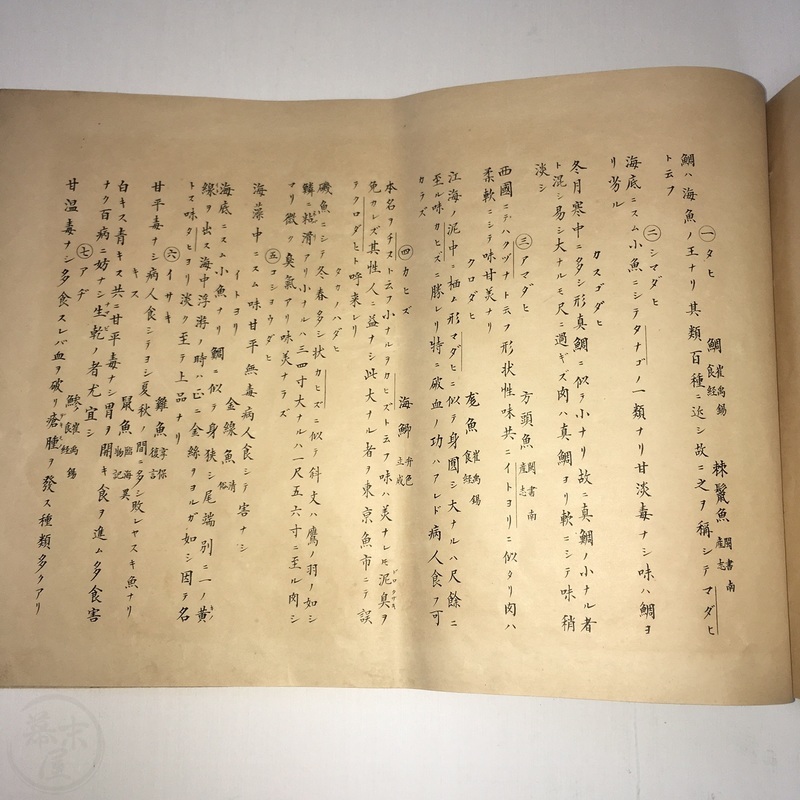 一 タヒ 鯛 崔禹錫食経 棘鬣魚 閩書南産志
鯛ハ海魚ノ王ナリ其類百種ニ近シ故ニ之ヲ稱シテマダヒ
ト云フ
二 シマダヒ
海底ニスム小魚ニシテタナゴノ一類ナリ甘淡毒ナシ味ハ鯛ヨ
リ劣ル
カスゴダヒ
冬月寒中ニ多シ形真鯛ニ似テ小ナリ故ニ真鯛ノ小ナル者
ト混シ易シ大ナルモ尺ニ過ギズ肉ハ真鯛ヨリ軟ニシテ味稍
淡シ
三 アマダヒ 方頭魚 閩書南産志
西國ニテハクブナト云フ形状性味共ニイトヨリニ似タリ肉ハ
柔軟ニシテ味甘美ナリ
クロダヒ 尨魚 崔禹錫食経
江海ノ泥中ニ栖ム形マダヒニ似テ身圓シ大ナルハ尺餘ニ
至ル味カヒズニ勝レリ特ニ破血ノ功ハアレド病人食フ可
カラズ
四 カヒズ 海鯽 弁色立成
本名ヲチヌト云フ小ナルヲカヒズト云フ味ハ美ナレ𪜈泥臭ヲ
免カレズ其性人ニ益ナシ此大ナル者ヲ東京魚市ニテ誤
テクロダヒト呼来レリ
タカノハダヒ
磯魚ニシテ冬春多シ状カヒズニ似テ斜文ハ鷹ノ羽ノ如シ
鱗ニ粘滑アリ小ナルハ三四寸大ナルハ一尺五六寸ニ至ル肉シ
マリ微ク臭氣アリ味美ナラズ
五 コシヨウダヒ
海藻中ニスム味甘平無毒病人食シテ害ナシ
イトヨリ 金線魚 清俗
海底ニスム小魚ナリ鯛ニ似テ身狭シ尾端別ニ一ノ黄
線ヲ出ス海中浮游ノ時ハ正ニ金絲ヲヨルガ如シ因テ名
トス味タヒヨリ淡ク至テ上品ナリ
六 イサキ 雞魚 寧波復言
甘平毒ナシ病人食シテヨシ夏秋ノ間ニ多シ敗レヤスキ魚ナリ
キス 鼠魚 臨海異物記
白キス青キス共ニ甘平毒ナシ胃ヲ開キ食ヲ進ム多食害
ナク百病ニ妨ナシ生乾ノ者尤宜シ
七 アヂ 鰺 崔禹錫食経
甘温毒ナシ多食スレバ血ヲ破リ瘡腫ヲ發ス種類多クアリ